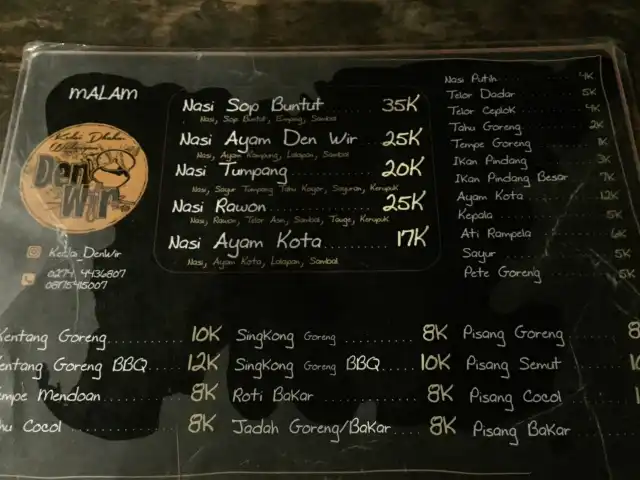 MALAM
Kedai Dhahar
Den Wir
Kedai_DenWir
0274 4436807
Nasi Sop Buntut 35K
Nasi, Sop Buntut, Emping, Sambal
Nasi Ayam Den Wir 25K
Nasi, Ayam Kampung, Lalapan, Sambal
Nasi Tumpang 20K
Nasi, Sayur Tumpang Tahu Koyor, Sayuran, Kerupuk
Nasi Rawon 25K
Nasi, Rawon, Telor Asin, Sambal, Tauge, Kerupuk
Nasi Ayam Kota 17K
Nasi, Ayam Kota, Lalapan, Sambal
Nasi Putih 4K
Telor Dadar 5K
Telor Ceplok 4K
Tahu Goreng 2K
Tempe Goreng 1K
Ikan Pindang 3K
Ikan Pindang Besar 7K
Ayam Kota 12K
Kepala 5K
Ati Rampela 6K
Sayur 5K
Pete Goreng 5K
Kentang Goreng 10K
entang Goreng BBQ 12K
empe Mendoan 8K
hu Cocol 8K
Singkong Goreng 8K
Singkong Goreng BBQ 10K
Roti Bakar 8K
Jadah Goreng/Bakar 8K
Pisang Goreng 8
Pisang Semut 10
Pisang Cocol 1
Pisang Bakar